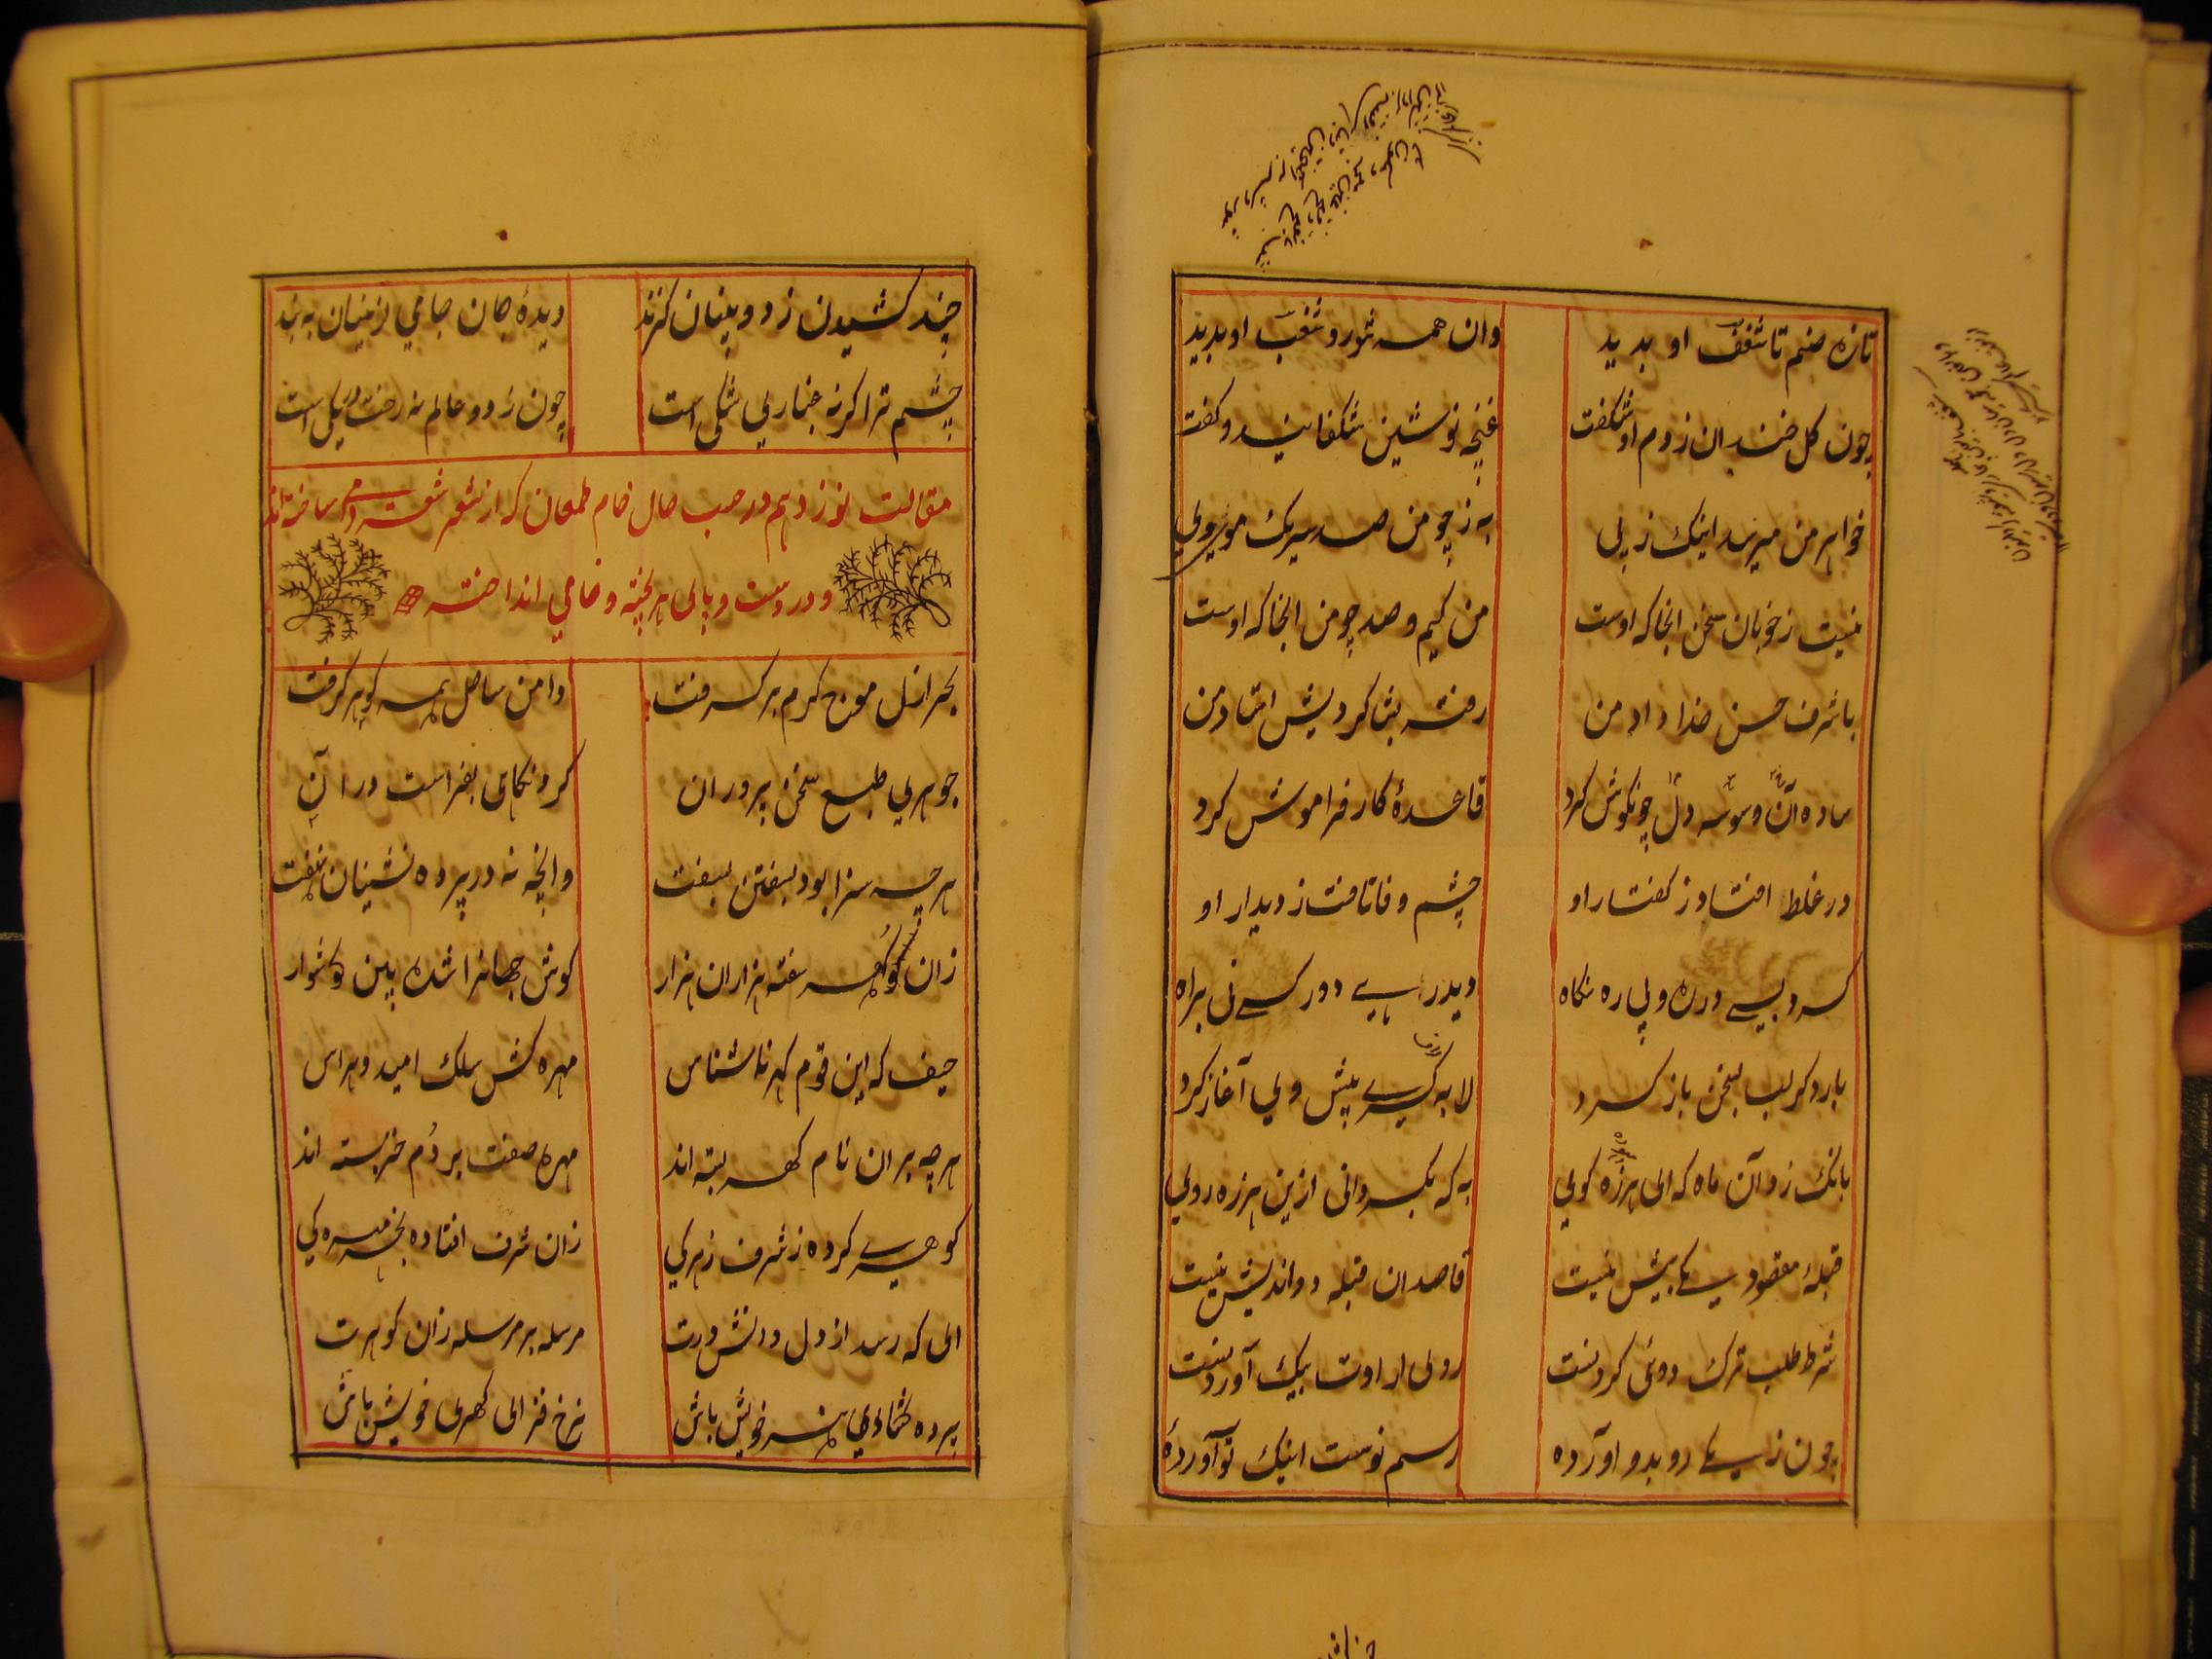 تازه صنم تا شغف او بدید
وان همه شور و شغب او بدید
چون کل خندان ز دم او شکفت
غنچهٔ نوشین شکفانید و کفت
خواهر من میرسد اینک ز پی
به ز چو من صد سر یک موی وی
نیست ز خوبان سخن انجا که اوست
من کیم و صد چو من انجا که اوست
با شرف حسن خدا داد من
رفته بشاکردیش استاد من
ساده آن وسوسه دل چو بکوش کرد
قاعدهٔ کار فراموش کرد
در غلط افتاد ز کفتار او
چشم وفا تافت ز دیدار او
کرد بسی در ره و بی ره نکاه
دید در راهی دور کسی نی براه
بار دکر لب بسخن باز کرد
لابه کری پیش وی آغاز کرد
بانک زد آن ماه که ای هرزه کوی
به که بکردانی ازین هرزه روی
قبلهٔ مقصود یکی بیش نیست
قاصد ان قبله دو اندیش نیست
شرط طلب ترک دوئی کردنست
روی ارادت بیک آوردنست
چون ز یکی رو بدو آورده
رسم نوست اینک تو آوردهٔ
چند کشیدن ز دو بینان کزند
دیدهٔ جان جامی ازینیان به بند
چشم ترا کرنه غبار یی شکی است
چون ز دو عالم نه رخت در یکی است
مقالت نوزدهم در حسب حال خام طمعان که از شعر شعر دامی ساخته‌اند
و در دست و پای هر پخته و خامی انداخته
بحر ازل موج کرم بر کرفت
دامن ساحل همه کوهر کرفت
جوهری طبع سخن پروران
کرد نکاهی بفراست در ان
هرچه سزا بود بسفتن بسفت
وانچه نه در پرده نشینان نهفت
زان کوهر سفته هزاران هزار
کوش جهانرا شده بین کوشوار
حیف که این قوم کهر ناشناس
مهره کش سلک امید و هراس
هرچه بران نام کهر بسته‌اند
مهره صفت بر دم خر بسته اند
کوهری کرده ز شرف زهرکی
زان شرف افتاده بخر مهره کی
ای که رسد از دل دانش ورت
مرسله بر مرسله زان کوهرت
پرده کشادی هنر خویش باش
نرخ فزای کهری خویش باش